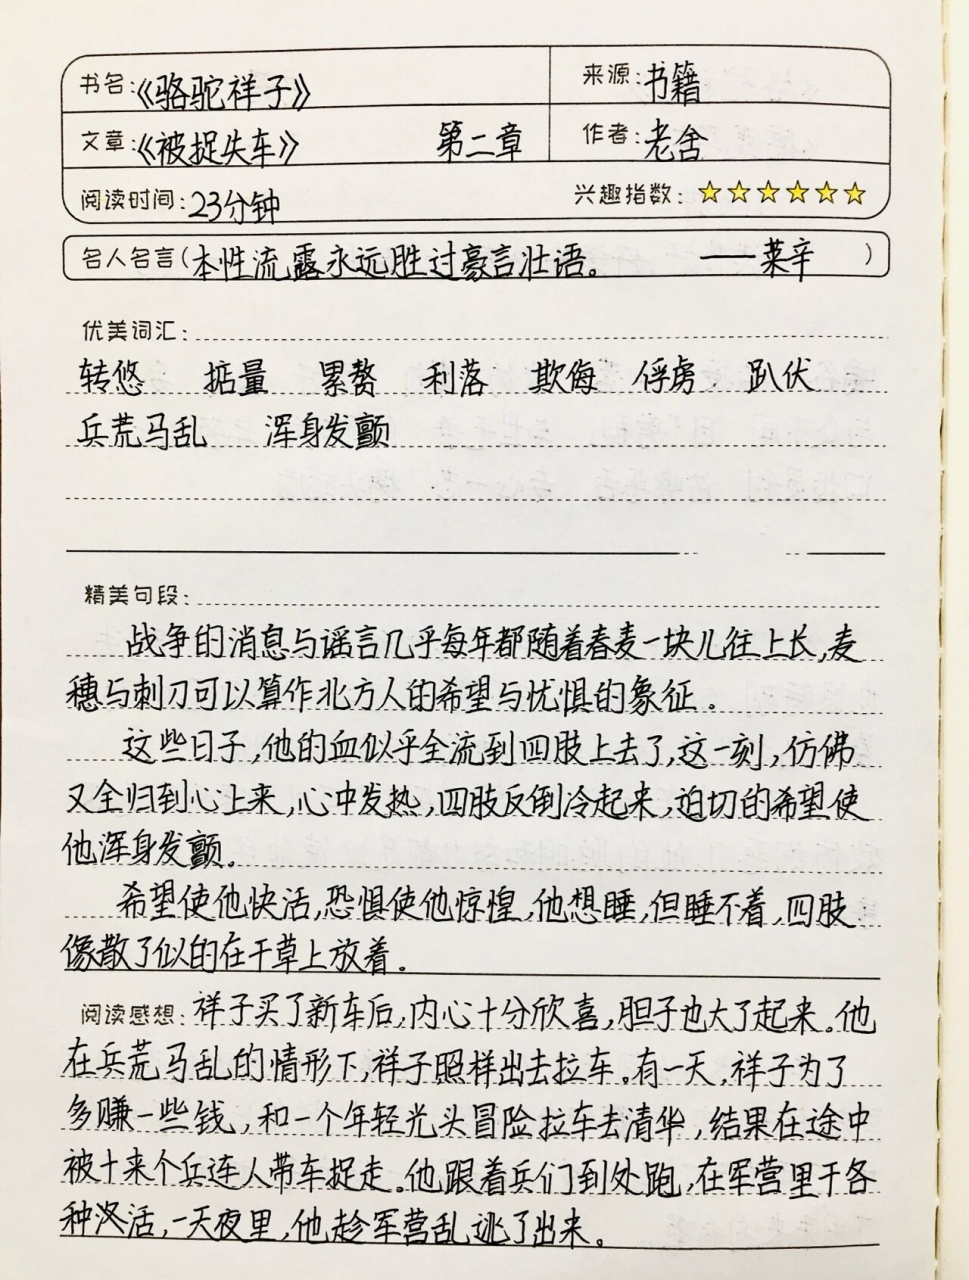 书名:《骆驼祥子》 来源:书籍
文章:《被捉失车》 第二章 作者:老舍
阅读时间:23分钟 兴趣指数:
名人名言(本性流露永远胜过豪言壮语。 ——莱辛 )
优美词汇:
转悠 掂量 累赘 利落 欺侮 俘虏 趴伏
兵荒马乱 浑身发颤
精美句段:
战争的消息与谣言几乎每年都随着春麦一块儿往上长,麦
穗与刺刀可以算作北方人的希望与忧惧的象征。
这些日子,他的血似乎全流到四肢上去了,这一刻,仿佛
又全归到心上来,心中发热,四肢反倒冷起来,迫切的希望使
他浑身发颤。
希望使他快活,恐惧使他惊惶,他想睡,但睡不着,四肢
像散了似的在干草上放着。
阅读感想:祥子买了新车后,内心十分欣喜,胆子也大了起来。他
在兵荒马乱的情形下,祥子照样出去拉车。有一天,祥子为了
多赚一些钱,和一个年轻光头冒险拉车去清华,结果在途中
被十来个兵连人带车捉走。他跟着兵们到处跑,在军营里干各
种活,一天夜里,他趁军营乱逃了出来。